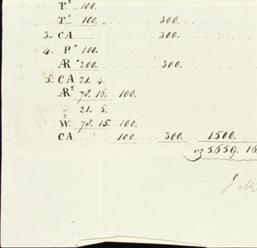 T° 100.
T° 100. 300.
3. CA 300.
4. P° 100.
AR 200. 300.
5. CA 21. 4.
AR° 78. 16. 100.
21. 5.
W. 78. 15. 100.
CA 100. 300. 1500.
5659. 16